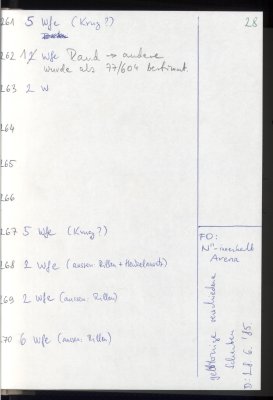 28
261 5 Wfe (Krug?)
262 12 Wfe Rand → andere
wurde als 77/604 bestimmt.
263 2 W
264
265
266
267 5 Wfe (Krug?)
268 2 Wfe (aussen: Rillen + Henkelansatz)
269 2 Wfe (aussen: Rillen)
270 6 Wfe (aussen: Rillen)
FO:
N'-ausserhalb
Arena
gelbtonige verschiedene
Scherben
D: 28.6.'85